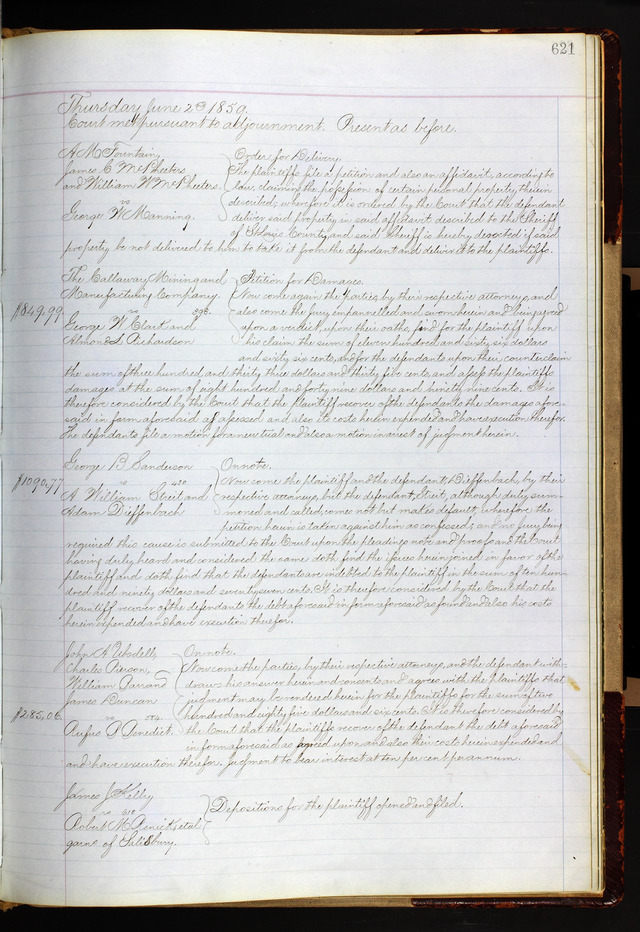 621
Thursday June 2d 1859.
Court met pursuant to adjournment. Present as before.
A M Fountain,
James C McPheeters
and William W McPheeters.
vs
George W Manning.
Order for Delivery.
The plaintiffs file a petition and also an affidavit, according to
law, claiming the possession of certain personal property therein
described; wherefore it is ordered by the Court that the defendant
deliver said property in said affidavit described to the Sheriff
of St Louis County, and said Sheriff is hereby directed if said
property be not delivered to him to take it from the defendant and deliver it to the plaintiffs.
The Callaway Mining and
Manufacturing Company.
vs 398.
George W Clark and
Almond S Richardson
$849.99
Petition for Damages.
Now come again the parties, by their respective attorneys, and
also come the jury impannelled and sworn herein and being agreed
upon a verdict, upon their oaths, find for the plaintiff upon
his claim the sum of eleven hundred and sixty six dollars
and sixty six cents, and for the defendants upon their counterclaim
the sum of three hundred and thirty three dollars and thirty five cents, and assess the plaintiffs
damages at the sum of eight hundred and forty nine dollars and ninety nine cents. It is
therefore considered by the Court that the plaintiff recover of the defendants the damages afore-
said in form aforesaid assessed and also its costs herein expended and have execution therefor.
The defendants file a motion for a new trial and also a motion in arrest of judgment herein.
George B Sanderson
vs 430
A William Streit and
Adam Dieffenbach
$1090.77
On note.
Now come the plaintiff and the defendant, Dieffenbach, by their
respective attorneys, but the defendant, Streit, although duly sum-
moned and called, comes not but makes default; wherefore the
petition herein is taken against him as confessed; and no jury being
required this cause is submitted to the Court upon the pleadings note and proofs and the Court
having duly heard and considered the same doth find the issues herein joined in favor of the
plaintiff and doth find that the defendants are indebted to the plaintiff in the sum of ten hun-
dred and ninety dollars and seventy seven cents. It is therefore considered by the Court that the
plaintiff recover of the defendants the debt aforesaid in form aforesaid as found and also his costs
herein expended and have execution therefor.
John A Ubsdell,
Charles Pierson,
William
James Duncan
vs 574.
Rufus P Benedict.
$285.06
On note.
Now come the parties, by their respective attorneys, and the defendant with-
draws his answer herein and consents and agrees with the plaintiffs that
judgment may be rendered herein for the plaintiffs for the sum of two
hundred and eighty five dollars and six cents. It is therefore considered by
the Court that the plaintiffs recover of the defendant the debt aforesaid
in form aforesaid as agreed upon and also their costs herein expended and
and have execution therefor. Judgment to bear interest at ten per cent per annum.
James J Kelly
vs 610
Robert M Renick et al
garns. of Salisbury.
Depositions for the plaintiff opened and filed.